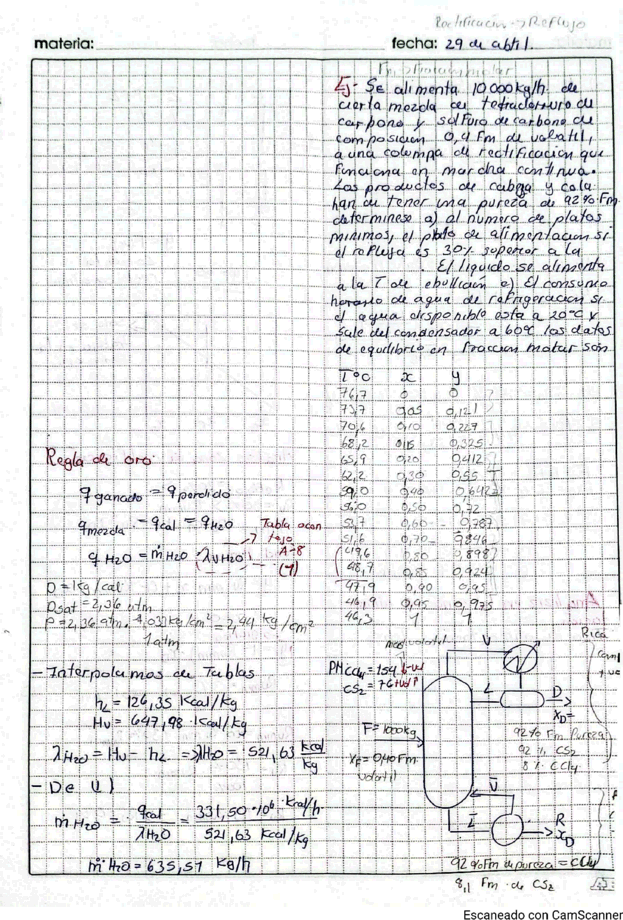 Rectificación → Reflujo
materia:
fecha: 29 de abril.
Ej- SE alimenta 10 000 kg/h de
cierta mezcla de tetracloruro de
carbono y sulfuro de carbono de
composición 0,4 Fm de volatil,
a una columna de rectificacion que
funciona en marcha continua.
Los productos de cabeza y cola
han de tener una pureza de 92% Fm
determinese a) el numero de platos
minimos, el plato de alimentacion si
el reflujo es 30% superior a la
. El liquido se alimenta
a la T de ebullición e) El consumo
horario de agua de refrigeracion si
el agua disponible esta a 20°C y
sale del condensador a 60°C los datos
de equilibrio en fraccion molar son
T°C x y
76,7 0 0
73,7 0,05 0,121
70,6 0,10 0,229
68,2 0,15 0,325
65,9 0,20 0,412
62,2 0,30 0,55
59,0 0,40 0,642
56,0 0,50 0,72
52,7 0,60 0,787
51,6 0,70 0,846
49,6 0,80 0,898
48,7 0,85 0,924
47,9 0,90 0,95
46,9 0,95 0,975
46,3 1 1
Regla de oro
q ganado = q perdido
q mezcla = qcal = qH2O
Tabla ocon
tojo
q H2O = ṁ H2O · λvH2O
A-8
P = 1 kg/cal
Psat = 2,36 atm
P = 2,36 atm . 1,033 kg/cm² = 2,44 kg/cm²
1 atm
- Interpolamos de Tablas
hL = 126,35 Kcal/kg
Hv = 647,98 Kcal/kg
λH2O = Hv - hL => λH2O = 521,63 kcal/kg
- De (1)
ṁ H2O = qcal / λH2O = 331,50·10⁶ Kcal/h / 521,63 Kcal/kg
ṁ H2O = 635,57 Kg/h
mas volatil
PM CCl4 = 154
CS2 = 76
V
L
D
XD =
Rica
92% Fm Pureza
92 % CS2
8 % CCl4
F = 1000 kg
XF = 0,40 Fm
volatil
V̅
L̅
R
XD
92 % Fm de pureza = CCl4
8,1 Fm de CS2
Escaneado con CamScanner